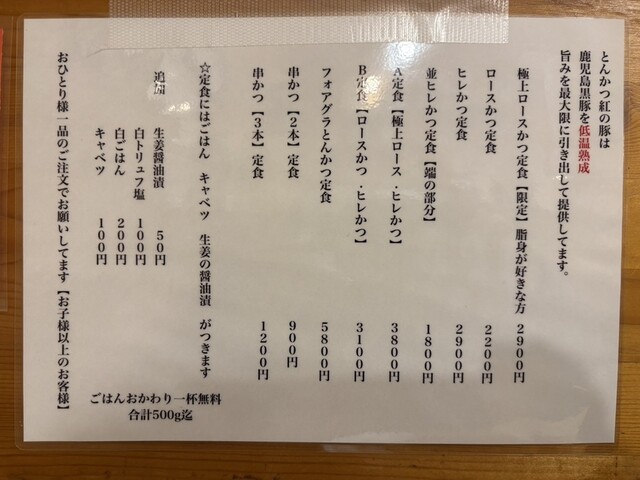 とんかつ紅の豚は
鹿児島黒豚を低温熟成
旨みを最大限に引き出して提供してます。
極上ロースかつ定食【限定】脂身が好きな方 2900円
ロースかつ定食 2200円
ヒレかつ定食 2900円
並ヒレかつ定食【端の部分】 1800円
A定食【極上ロース・ヒレかつ】 3800円
B定食【ロースかつ・ヒレかつ】 3100円
フォアグラとんかつ定食 5800円
串かつ【2本】定食 900円
串かつ【3本】定食 1200円
☆定食にはごはん キャベツ 生姜の醤油漬 がつきます
追加 生姜醤油漬 50円
白トリュフ塩 100円
白ごはん 200円
キャベツ 100円
おひとり様一品のご注文でお願いしてます【お子様以上のお客様】
ごはんおかわり一杯無料
合計500g迄